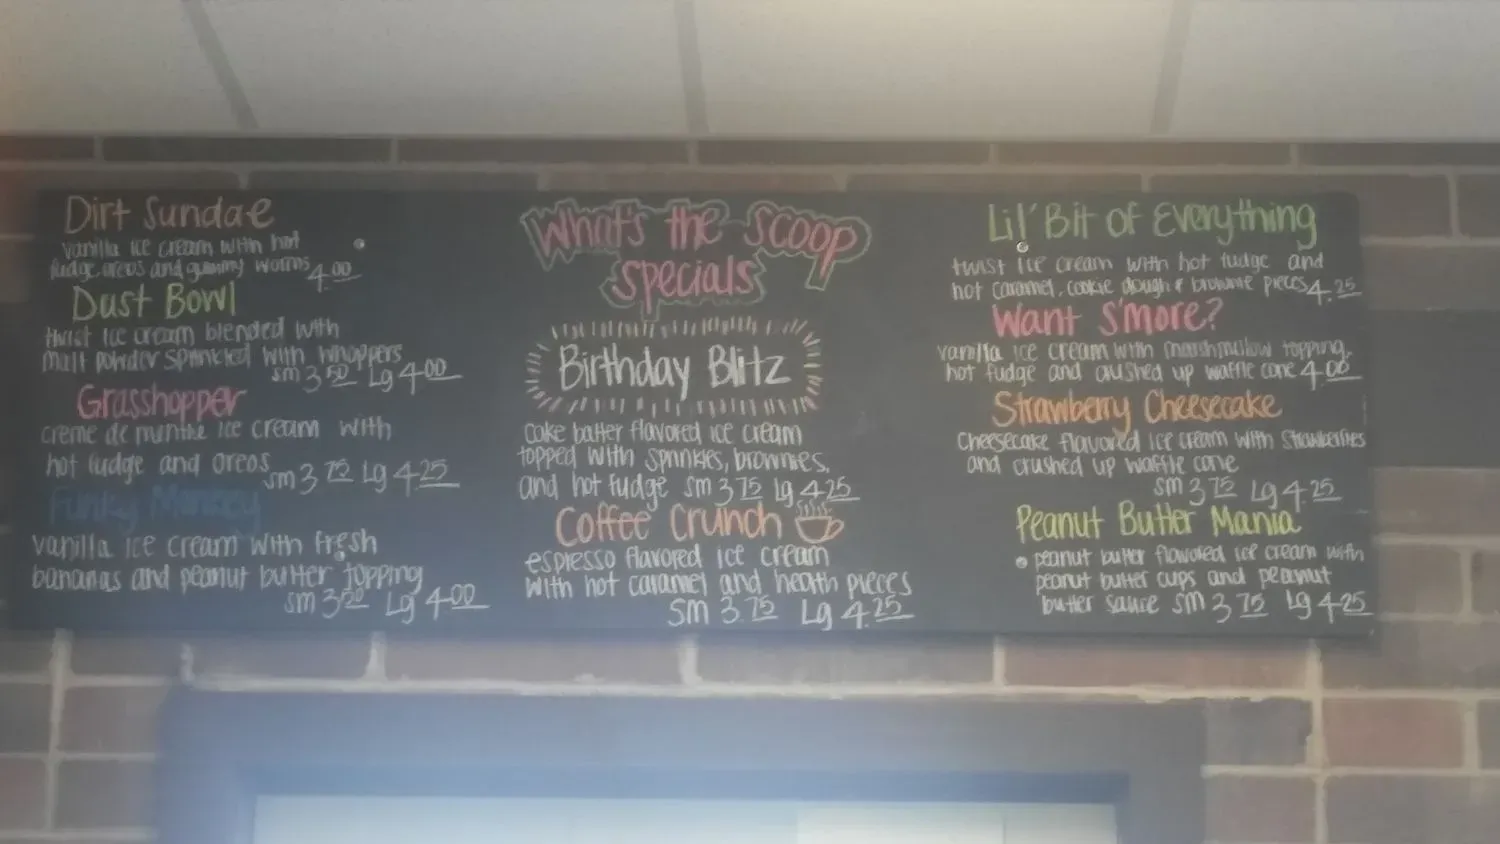 Dirt Sundae
vanilla ice cream with hot
fudge, oreos and gummy worms 4.00
Dust Bowl
twist ice cream blended with
malt powder sprinkled with whoppers
sm 3.50 Lg 4.00
Grasshopper
creme de menthe ice cream with
hot fudge and oreos sm 3.75 Lg 4.25
Funky Monkey
vanilla ice cream with fresh
bananas and peanut butter topping
sm 3.50 Lg 4.00
What's the Scoop
specials
Birthday Blitz
cake batter flavored ice cream
topped with sprinkles, brownies,
and hot fudge sm 3.75 lg 4.25
Coffee Crunch
espresso flavored ice cream
with hot caramel and heath pieces
sm 3.75 Lg 4.25
Lil' Bit of Everything
twist ice cream with hot fudge and
hot caramel, cookie dough & brownie pieces 4.25
Want S'more?
vanilla ice cream with marshmallow topping,
hot fudge and crushed up waffle cone 4.00
Strawberry Cheesecake
cheesecake flavored ice cream with strawberries
and crushed up waffle cone
sm 3.75 Lg 4.25
Peanut Butter Mania
peanut butter flavored ice cream with
peanut butter cups and peanut
butter sauce sm 3.75 Lg 4.25